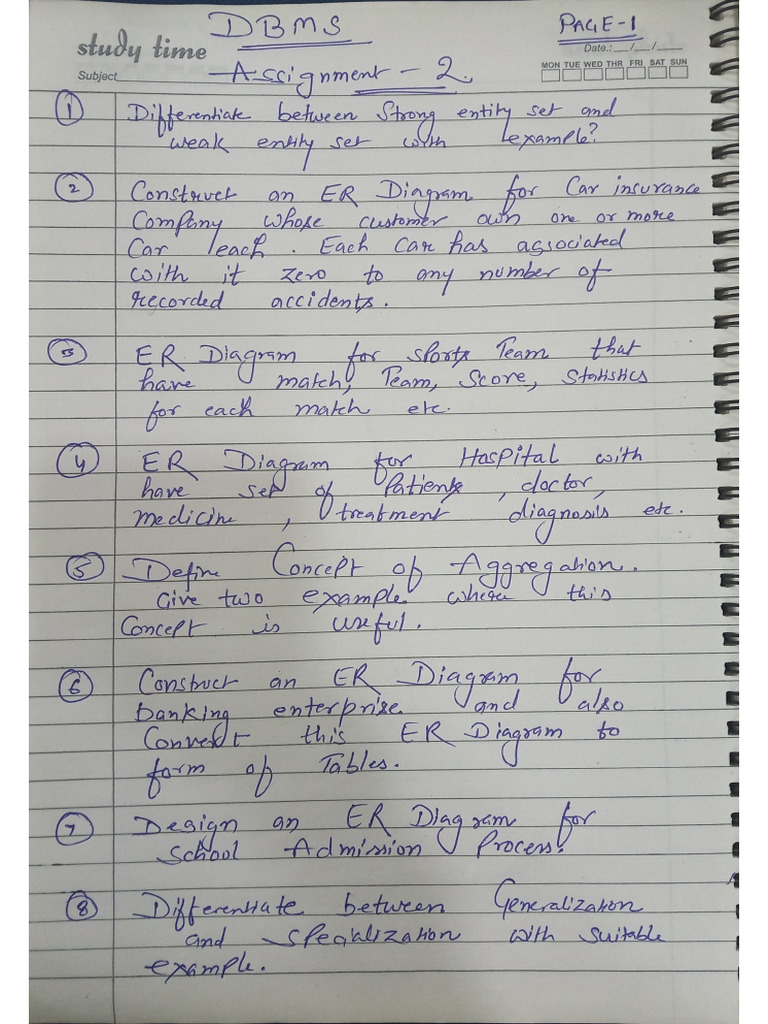 DBMS
PAGE-1
study time
Date.: __/__/__
Subject
Assignment - 2.
MON TUE WED THR FRI SAT SUN
1 Differentiate between Strong entity set and
weak entity set with example?
2 Construct an ER Diagram for Car insurance
Company whose customer own one or more
Car each. Each car has associated
with it zero to any number of
recorded accidents.
3 ER Diagram for sports Team that
have match, Team, Score, Statistics
for each match etc.
4 ER Diagram for Hospital with
have set of Patients, doctor,
medicine, treatment diagnosis etc.
5 Define Concept of Aggregation.
Give two example where this
Concept is useful.
6 Construct an ER Diagram for
banking enterprise and also
Convert this ER Diagram to
form of Tables.
7 Design an ER Diagram for
School Admission Process.
8 Differentiate between Generalization
and specialization with suitable
example.